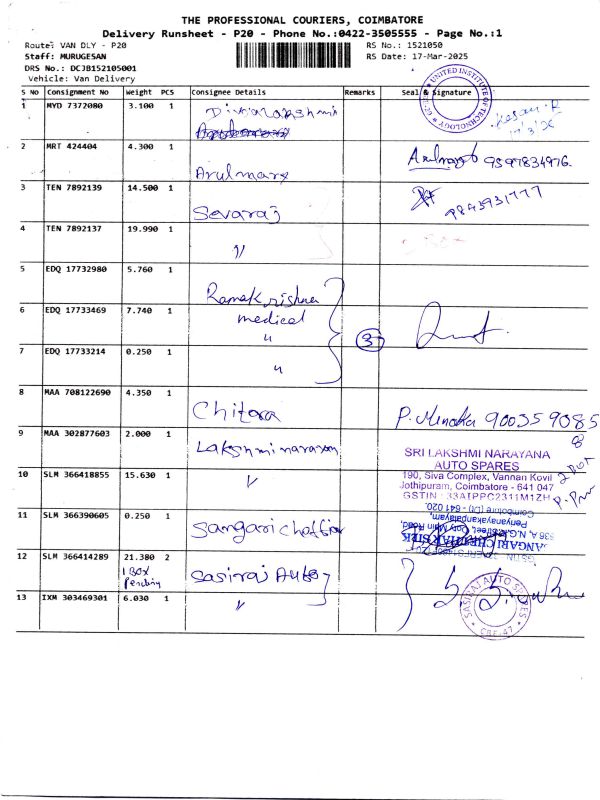 THE PROFESSIONAL COURIERS, COIMBATORE
Delivery Runsheet - P20 - Phone No.:0422-3505555 - Page No.:1
Route: VAN DLY - P20
RS No.: 1521050
Staff: MURUGESAN
RS Date: 17-Mar-2025
DRS No.: DCJB152105001
Vehicle: Van Delivery
S No Consignment No Weight PCS Consignee Details Remarks Seal & Signature
UNITED INSTITUTE OF TECHNOLOGY
1 MYD 7372080 3.100 1 Divyalakshmi
2 MRT 424404 4.300 1 Arulmary 9597834976
3 TEN 7892139 14.500 1 Sevaraj 9843931777
4 TEN 7892137 19.990 1 〃
5 EDQ 17732980 5.760 1 Ramakrishna
6 EDQ 17733469 7.740 1 medical 〃
3
7 EDQ 17733214 0.250 1 〃
8 MAA 708122690 4.350 1 Chitara P. Menaka 9003590858
9 MAA 302877603 2.000 1 Lakshminarayan
SRI LAKSHMI NARAYANA
AUTO SPARES
190, Siva Complex, Vannan Kovil
Jothipuram, Coimbatore - 641 047
GSTIN : 33AIPPC2311M1ZH
10 SLM 366418855 15.630 1 〃
2 Box
Coimbatore (Dt) - 641 020.
Periyanayakanpalayam,
11 SLM 366390605 0.250 1
12 SLM 366414289 21.380 2 Sasiraj Auto
1 Box
Pending
13 IXM 303469301 6.030 1 〃
SASIRAJ AUTO SPARES
CBE-47